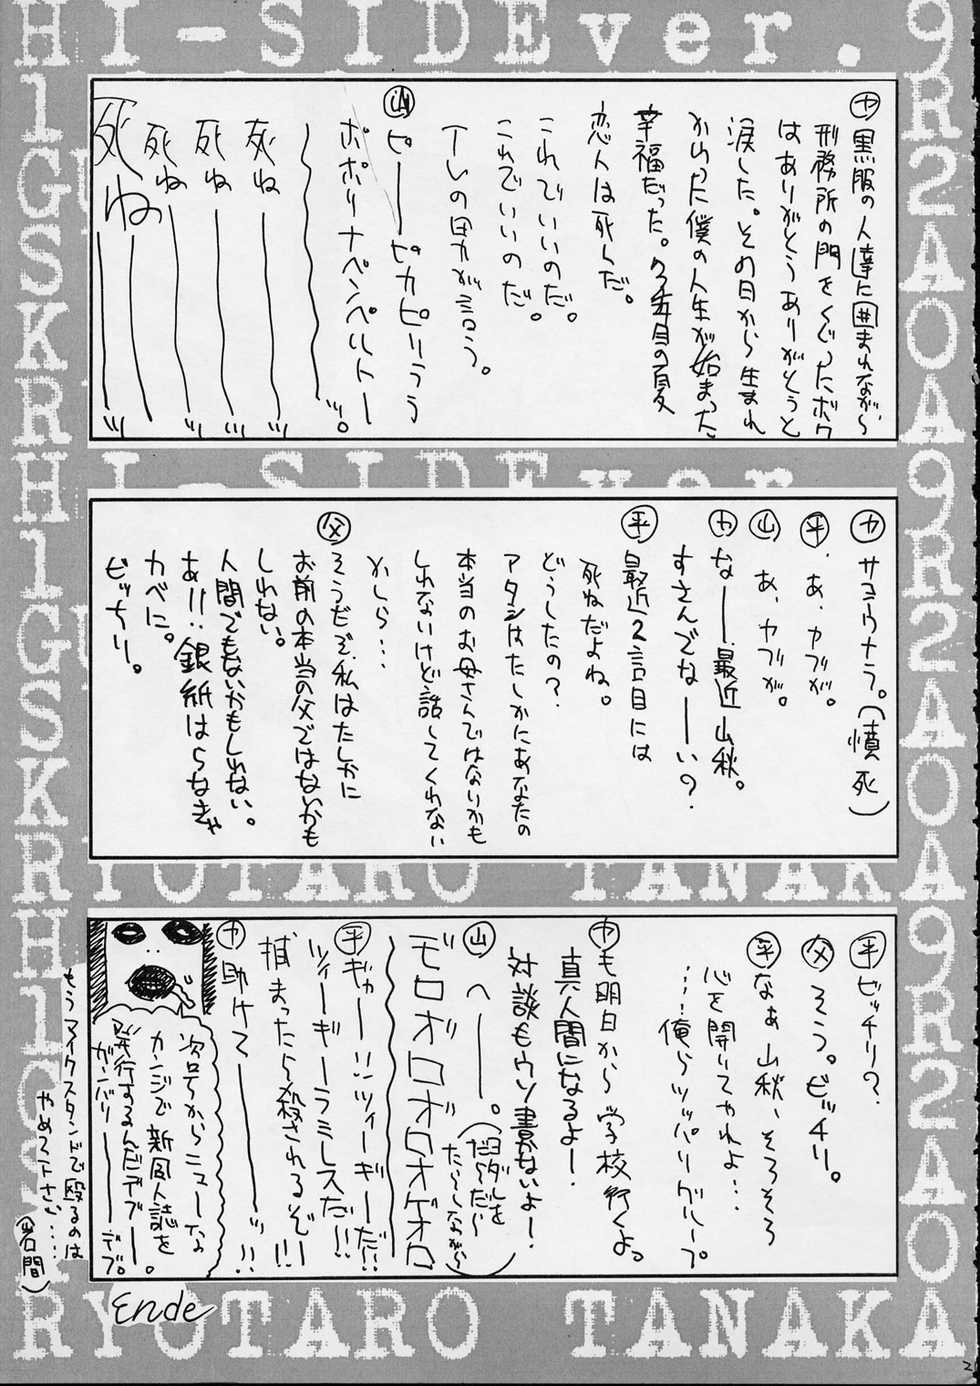 HI-SIDEver.
㋕黒服の人達に囲まれながら、
刑務所の門をくぐったボク
はありがとうありがとうと
涙した。その日から生まれ
かわった僕の人生が始まった
幸福だった。
恋人は死んだ。
これでいいのだ。
これでいいのだ。
Tレの男が言う。
㊤ピーーピカピリうう
ポポリナペンペルトー
〜〜〜ッ。
死ね〜〜ッ
死ね〜〜ッ
死ね〜〜ッ
死ね〜〜ッ
HI-SIDEver.
㋕サヨウナラ。(憤死)
平.あ、カブが。
山 あ、カブが。
カ なーー最近山秋。
すさんでなーーい?
平 最近2言目には
死ねだよね。
どうしたの?
アタシはたしかにあなたの
本当のお母さんではないかも
しれないけど話してくれない
かしら…
父 そうだぞ、私はたしかに
お前の本当の父ではないかも
しれない。
人間でもないかもしれない。
あ!!銀紙はらなきゃ
カベに。
ビッチリ。
RYOTARO TANAKA
平 ビッチリ?
父 そう。ビッチリ。
平 なぁ山秋、そろそろ
心を開いてやれよ…
…俺らツッパリグループ
カ も明日から学校行くよ。
真人間になるよー!
対談もウソ書かないよー!
山 へーー。
(ヨダレを
だらだら〜
たらしながら)
モロボロロボロオゲオロ
平 ギャー!!ツィーギーだ!!
ツィーギーラミレスだ!!
捕まったら殺されるぞー!!
カ 助けてーーッ!!
次号からニューな
カンジで新同人誌を
発行するんだデブー。
ガンバリーーデブ。
もうマイクスタンドで殴るのは
やめて下さい…
(岩間)
Ende
RYOTARO TANAKA
2